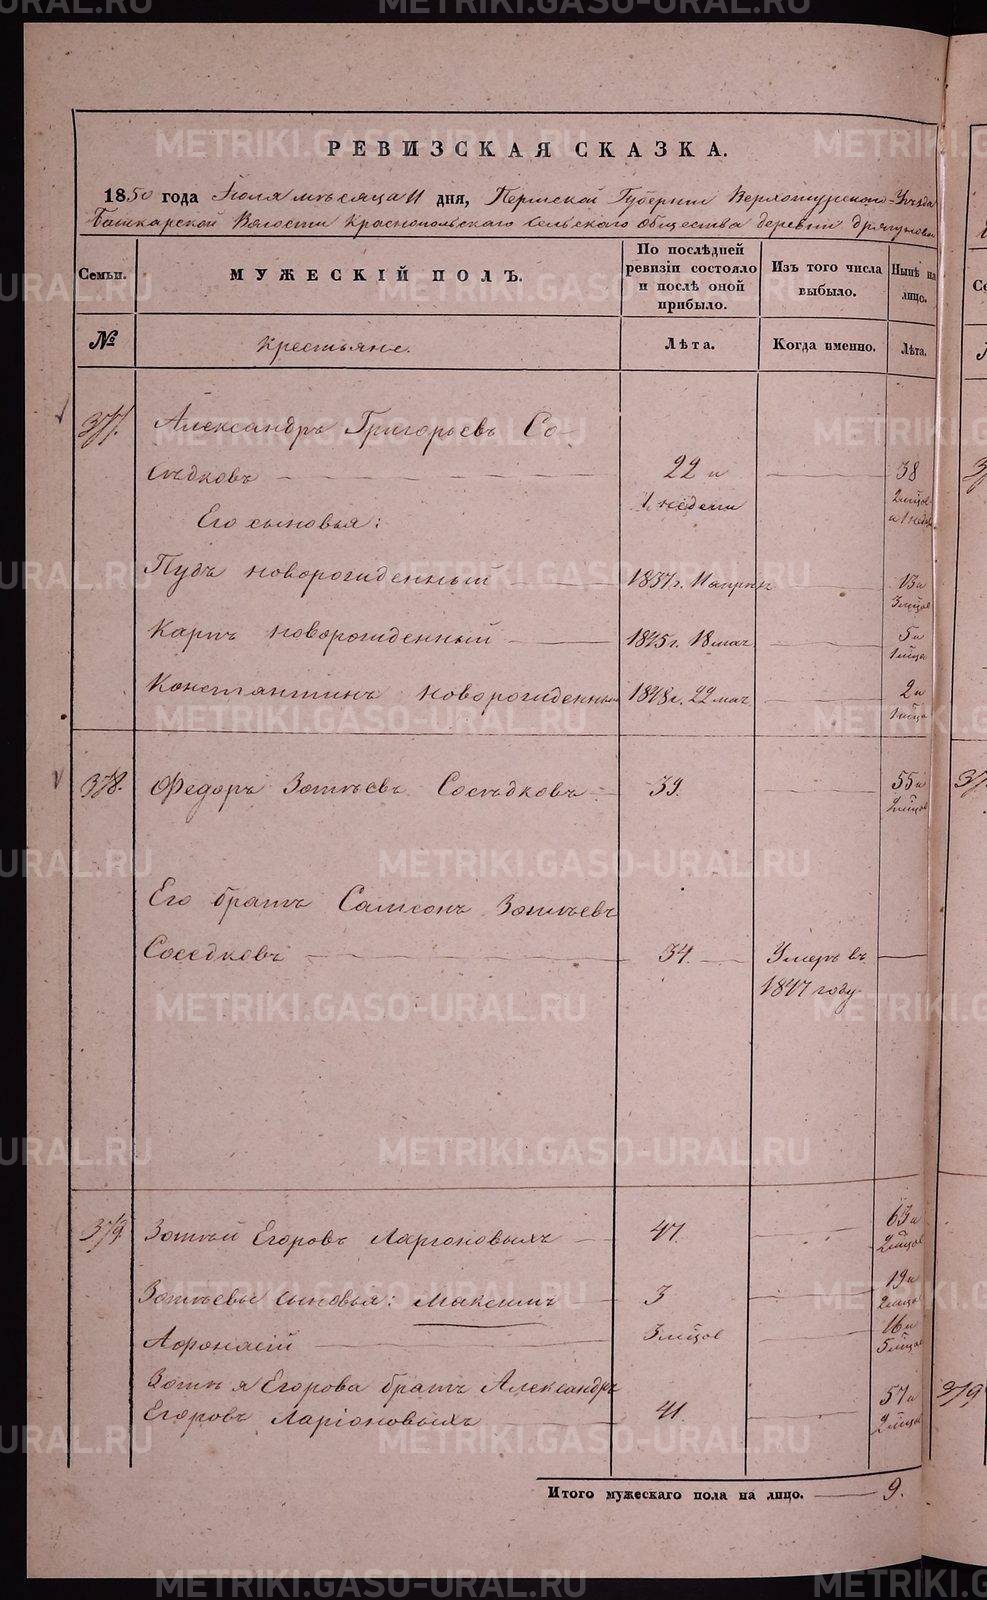 METRIKI.GASO-URAL.RU
РЕВИЗСКАЯ СКАЗКА.
1850 года Июля мѣсяца 11 дня, Пермской Губерніи Верхотурскаго Уѣзда
Башкарской Волости Краснопольскаго Сельскаго Общества деревни
Семьи. МУЖЕСКІЙ ПОЛЪ. По послѣдней ревизіи состояло и послѣ оной прибыло. Изъ того числа выбыло. Нынѣ на лицо.
№ Крестьяне. Лѣта. Когда именно. Лѣта.
377. Александръ Григорьевъ Со-
сѣдковъ 22 и 38
1 недели 2 мѣсяц и 1 нед
Его сыновья:
Пудъ новорожденный 1837г. 11 апреля 13 и 3 мѣсяц
Карпъ новорожденный 1845г. 18 мая 5 и 1 мѣсяц
Константинъ новорожденный 1848г. 22 мая 2 и 1 мѣсяц
378. Федоръ Зотѣевъ Сосѣдковъ 39. 55 и 2 мѣсяц
Его братъ Самсонъ Зотѣевъ
Соседковъ 34. Умеръ въ
1847 году
379 Зотѣй Егоровъ Ларионовыхъ 47. 63 и 2 мѣсяц
Зотѣевы сыновья: Максимъ 3 19 и 2 мѣсяц
Афонасій 3 мѣсяц 16 и 5 мѣсяц
Зотѣя Егорова братъ Александръ
Егоровъ Ларіоновыхъ 41. 57 и 2 мѣсяц
Итого мужескаго пола на лицо. 9.